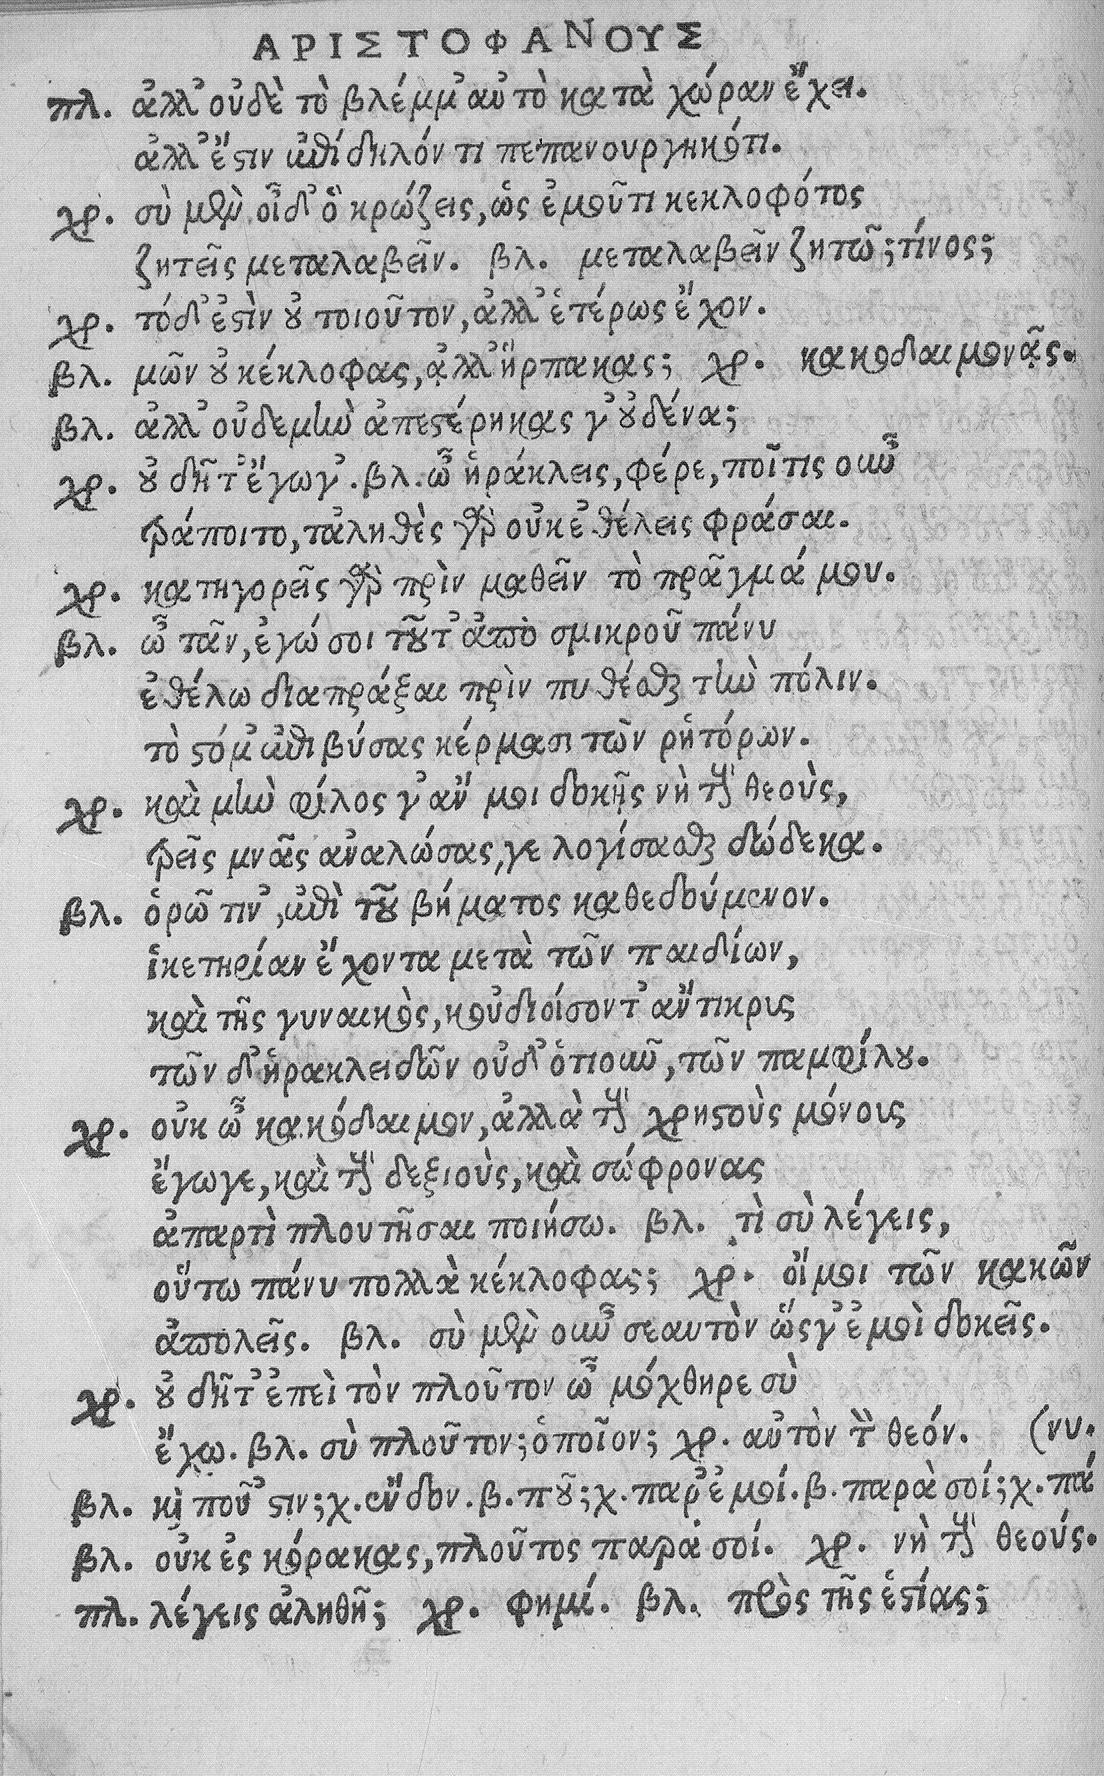 ΑΡΙΣΤΟΦΑΝΟΥΣ
πλ. ἀλλ' οὐδὲ τὸ βλέμμ' αὐτὸ κατὰ χώραν ἔχει.
ἀλλ' ἔστιν ἐπίδηλόν τι πεπανουργηκότι.
χρ. σὺ μὲν οἶδ' ὃ κρώζεις, ὡς ἐμοῦ τι κεκλοφότος
ζητεῖς μεταλαβεῖν. βλ. μεταλαβεῖν ζητῶ; τίνος;
χρ. τόδ' ἐστὶν οὐ τοιοῦτον, ἀλλ' ἑτέρως ἔχον.
βλ. μῶν οὐ κέκλοφας, ἀλλ' ἥρπακας; χρ. κακοδαιμονᾷς.
βλ. ἀλλ' οὐδὲ μὴν ἀπεστέρηκας γ' οὐδένα;
χρ. οὐ δῆτ' ἔγωγ'. βλ. ὦ ἡράκλεις, φέρε, ποῖ τις οὖν
τράποιτο, τἀληθὲς γὰρ οὐκ ἐθέλεις φράσαι.
χρ. κατηγορεῖς γὰρ πρὶν μαθεῖν τὸ πρᾶγμά μου.
βλ. ὦ τᾶν, ἐγώ σοι τοῦτ' ἀπὸ σμικροῦ πάνυ
ἐθέλω διαπράξαι πρὶν πυθέσθαι τὴν πόλιν.
τὸ στόμ' ἐπιβύσας κέρμασι τῶν ῥητόρων.
χρ. καὶ μὴν φίλος γ' ἄν μοι δοκῇς νὴ τοὺς θεοὺς,
τρεῖς μνᾶς ἀναλώσας, γε λογίσασθαι δώδεκα.
βλ. ὁρῶ τιν', ἐπὶ τοῦ βήματος καθεδούμενον.
ἱκετηρίαν ἔχοντα μετὰ τῶν παιδίων,
καὶ τῆς γυναικὸς, κοὐ διοίσοντ' ἄντικρις
τῶν δ' ἡρακλειδῶν οὐδ' ὁτιοῦν, τῶν παμφίλου.
χρ. οὐκ ὦ κακόδαιμον, ἀλλὰ τοὺς χρηστοὺς μόνους
ἔγωγε, καὶ τοὺς δεξιοὺς, καὶ σώφρονας
ἀπαρτὶ πλουτῆσαι ποιήσω. βλ. τὶ σὺ λέγεις,
οὕτω πάνυ πολλὰ κέκλοφας; χρ. οἴμοι τῶν κακῶν
ἀπολεῖς. βλ. σὺ μὲν οὖν σεαυτὸν ὥς γ' ἐμοὶ δοκεῖς.
χρ. οὐ δῆτ' ἐπεὶ τὸν πλοῦτον ὦ μόχθηρε σὺ
ἔχω. βλ. σὺ πλοῦτον; ὁποῖον; χρ. αὐτὸν τὸν θεόν. (νυ.
βλ. καὶ ποῦ 'στιν; χ. ἔνδον. β. ποῦ; χ. παρ' ἐμοί. β. παρὰ σοί; χ. πά
βλ. οὐκ ἐς κόρακας, πλοῦτος παρὰ σοί. χρ. νὴ τοὺς θεούς.
πλ. λέγεις ἀληθῆ; χρ. φημί. βλ. πρὸς τῆς ἑστίας;